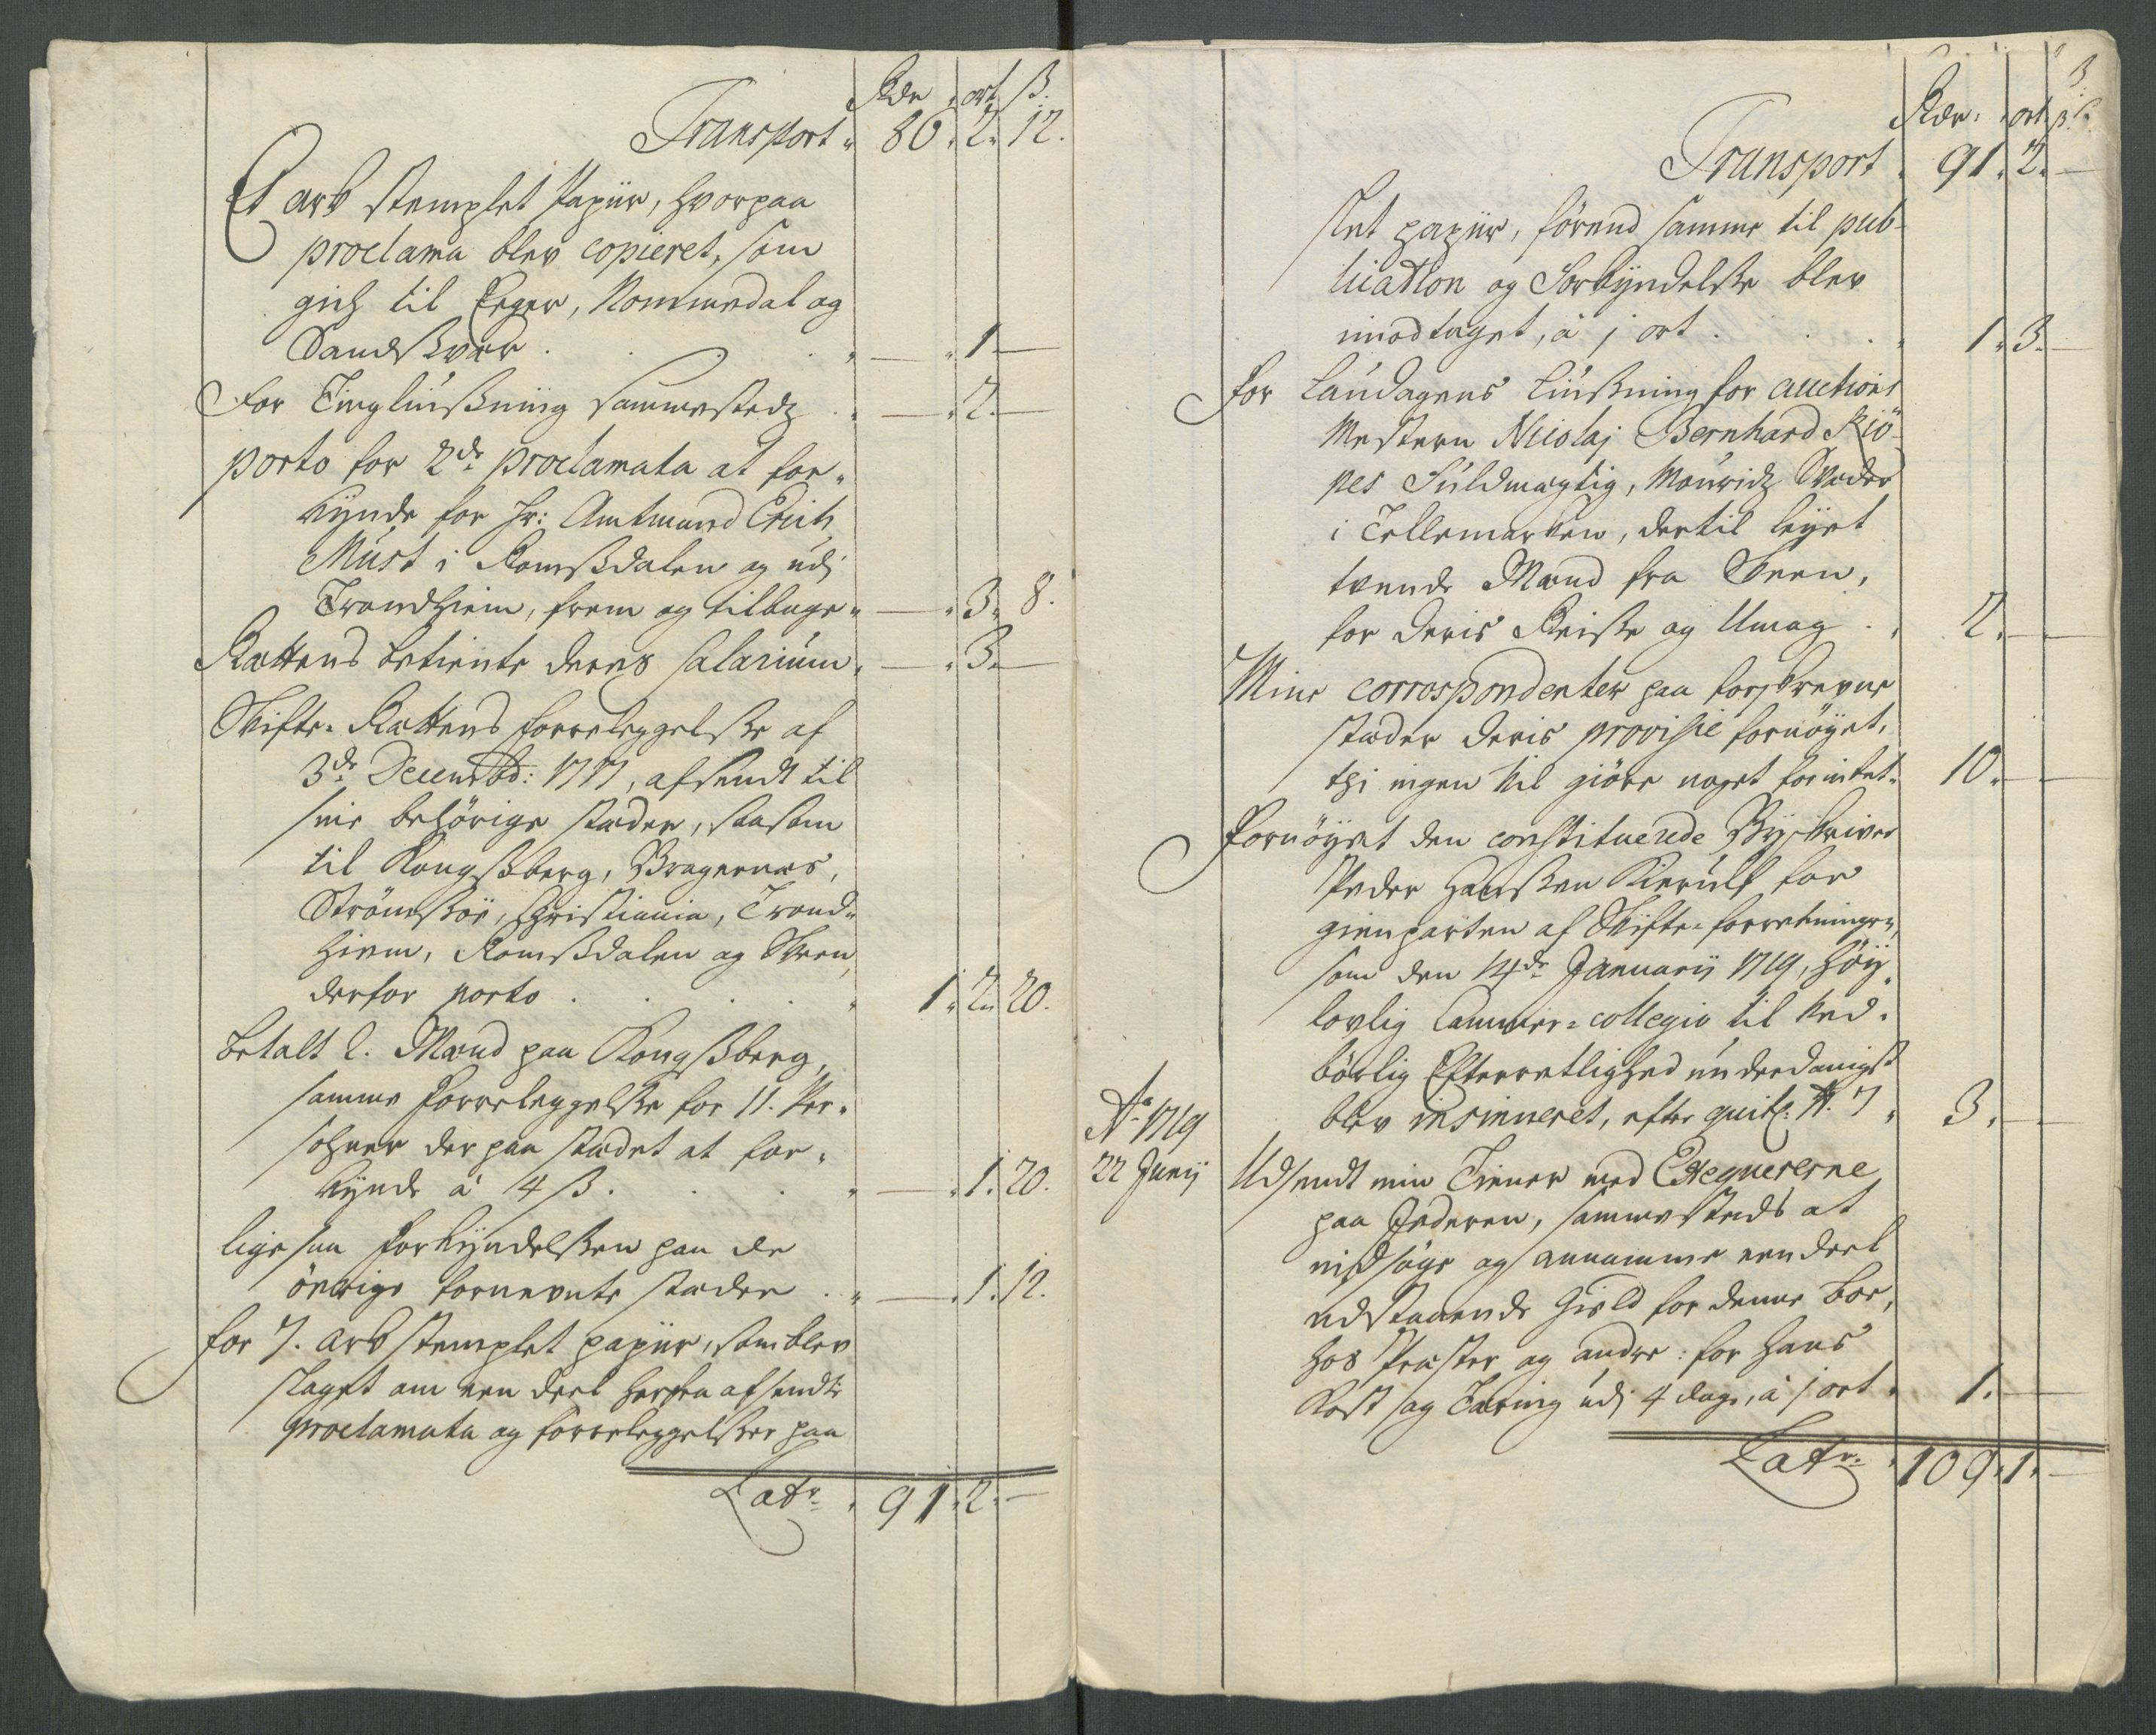 Rdr ort ß.
Transport 86. 2. 12.
Et ark stemplet Papiir, hvorpaa
proclama blev copieret, som
gich til Eeger, Nommedal og
Sandsver . . . — 1 —
For Tinglüßning sammestedz . — 2. —
porto for 2de proclamata at for-
kynde for Hr: Amtmand Erich
Must i Romßdalen og udj
Trondhiem, frem og tilbage — 3. 8.
Rættens betiente deres salarium — 3. —
Skifte-Rættens forreleggelße af
3de Decembr: 1717, afsendt til
sine behörige stæder, saasom
til Kongßberg, Bragernæs,
Strömßöe, Christiania, Trond-
hiem, Romßdalen og Skeen,
derfor porto . . . 1. 2. 20.
betalt 2. Mænd paa Kongßberg,
samme forreleggelße for 11. Per-
sohner der paa stædet at for-
kynde à 4 ß. . . — 1. 20.
ligesaa forkyndelßen paa de
övrige fornevnte stæder . — 1. 12.
for 7. ark stemplet papiir, som blev
slaget om een deel herfra afsendte
proclamata og forreleggelßer paa
Latr. 91. 2. —
3
Rdr. ort ß.
Transport 91. 2. —
slet papiir, förend samme til pub-
lication og Forkyndelße blev
imodtaget, à j ort . . . 1. 3. —
for Laudagens Lüußning for Auctions
Mesteren Nicolaj Bernhard Kiö-
pes Fuldmægtig, Mouridz
i Tellemarken, dertil leyet
tvende Mænd fra Skeen,
for deris Reiße og Umag . 2. —
Mine correspondenter paa forskrevne
stæder deris provisie fornöyet,
thi ingen vil giöre noget for intet. 10. —
Fornöyet den constituerede Byeskriver
Peder Hanßen Kierulf for
gienparten af Skifte-forretningen,
som den 14de Januarij 1719, höy-
lovlig Cammer-collegio til ved-
börlig Efterretlighed underdanigst
blev insinueret, efter quit: N. 7 . 3. —
Ao 1719
22 Junij
Udsendt min Tiener med Exequererne
paa Jederen, sammesteds at
indsöge og annamme een deel
udstaaende Gield for denne boe,
hos Præster og andre: for hans
Kost og Tæring udj 4 dage, à j ort . 1. —
Latr. 109. 1. —